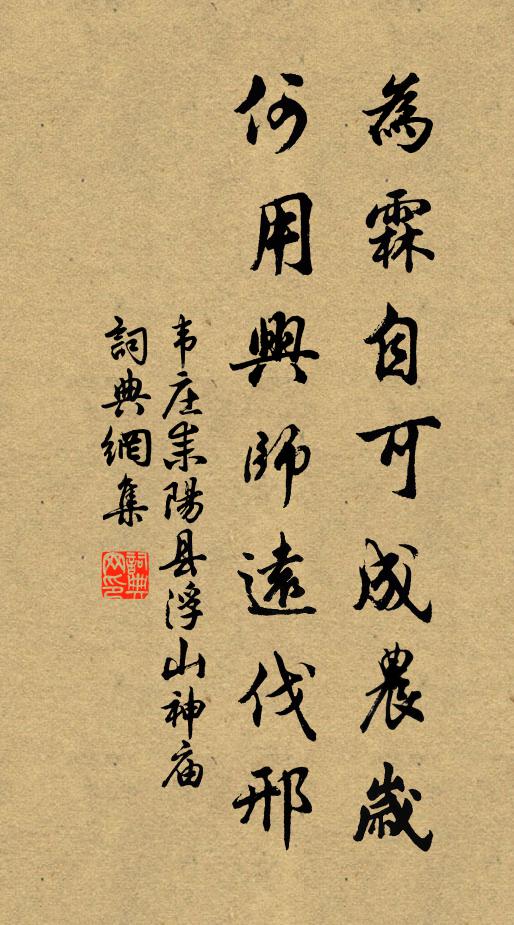 為霖自可成農歲
何用興師遠伐邢
韦庄耒陽县浮山神庙
詞典網集
詞典網印